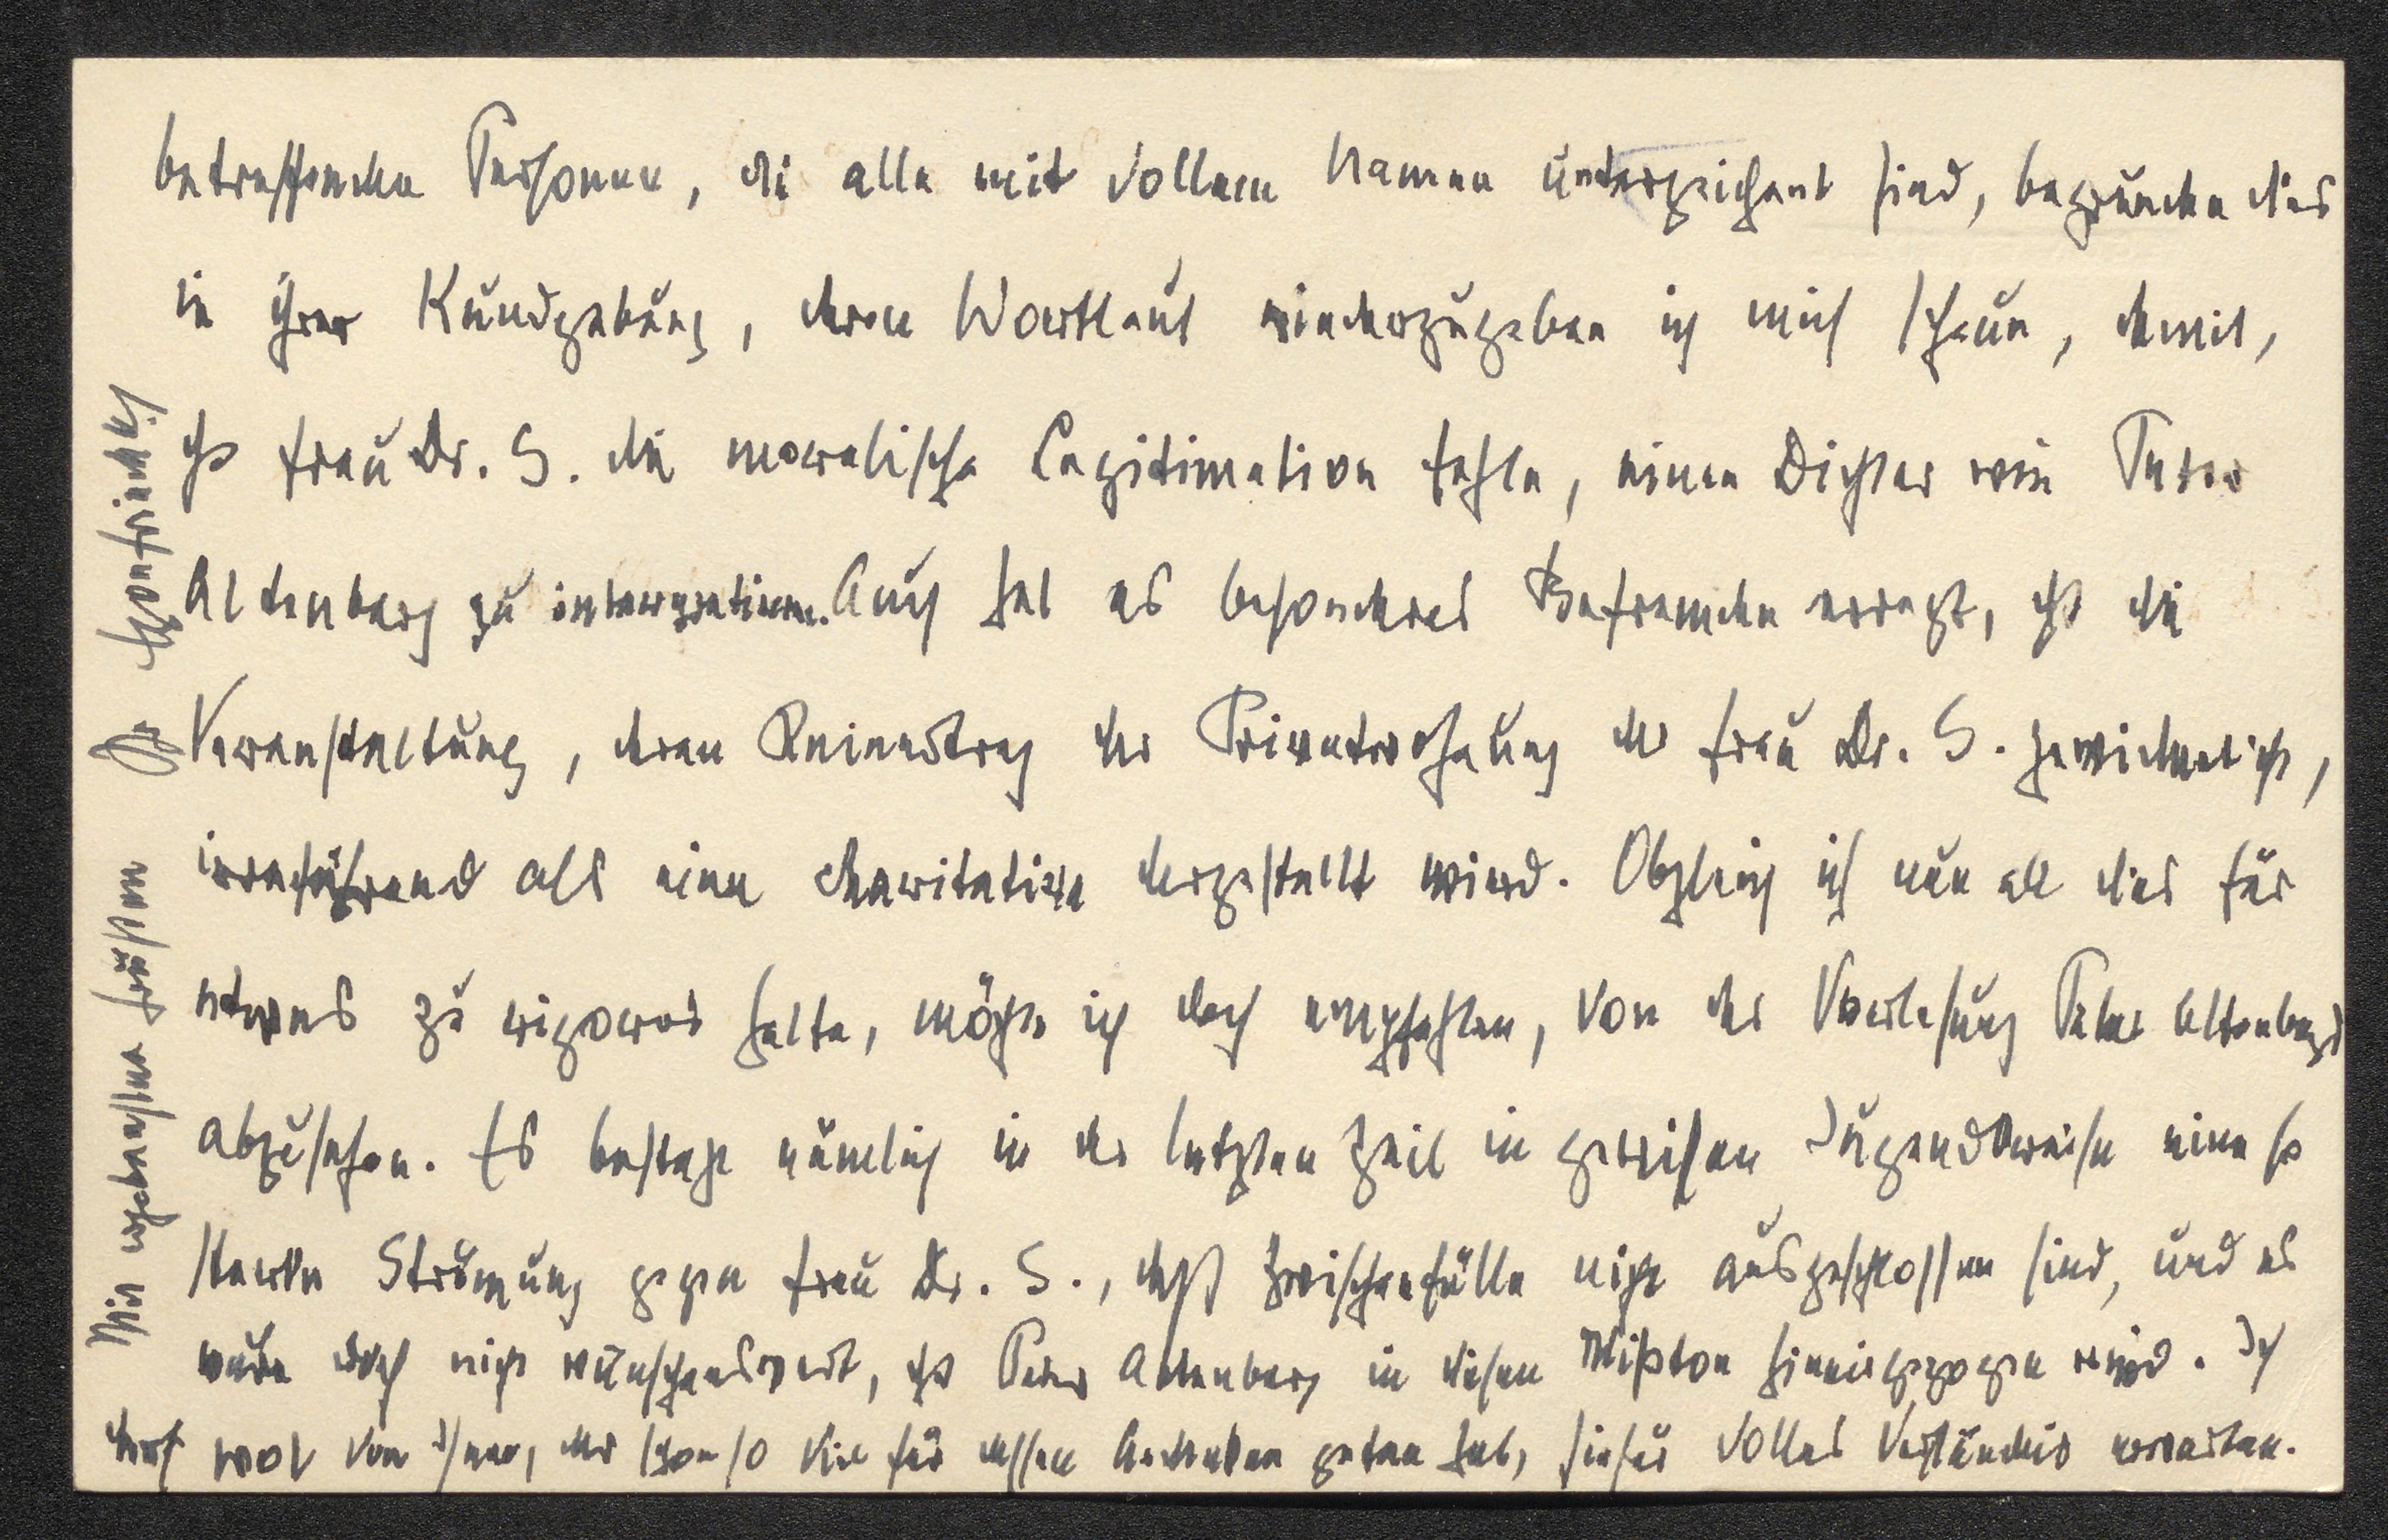 betreffenden Personen, die alle mit vollem Namen unterzeichnet sind, begründen dies
in ihrer Kundgebung, deren Wortlaut wiederzugeben ich mich scheue, damit,
dass Frau Dr. S. die moralische Legitimation fehle, einen Dichter wie Peter
Altenberg zu interpretieren. Auch hat es besonderes Befremden erregt, dass die
Veranstaltung, deren Reinertrag der Privatwohnung der Frau Dr. S. gewidmet ist,
irreführend als eine charitative dargestellt wird. Obgleich ich nun all dies für
etwas zu rigoros halte, möchte ich doch empfehlen, von der Vorlesung Peter Altenbergs
abzusehen. Es besteht nämlich in der letzten Zeit in gewissen Jugendkreisen eine so
starke Strömung gegen Frau Dr. S., daß Zwischenfälle nicht ausgeschlossen sind, und es
wäre doch nicht wünschenswert, dass Peter Altenberg in diesen Mißton hineingezogen wird. Ich
darf wol von Ihnen, der schon so viel für dessen Andenken getan hat, hiefür volles Verständnis erwarten.
Mit ergebensten Grüssen